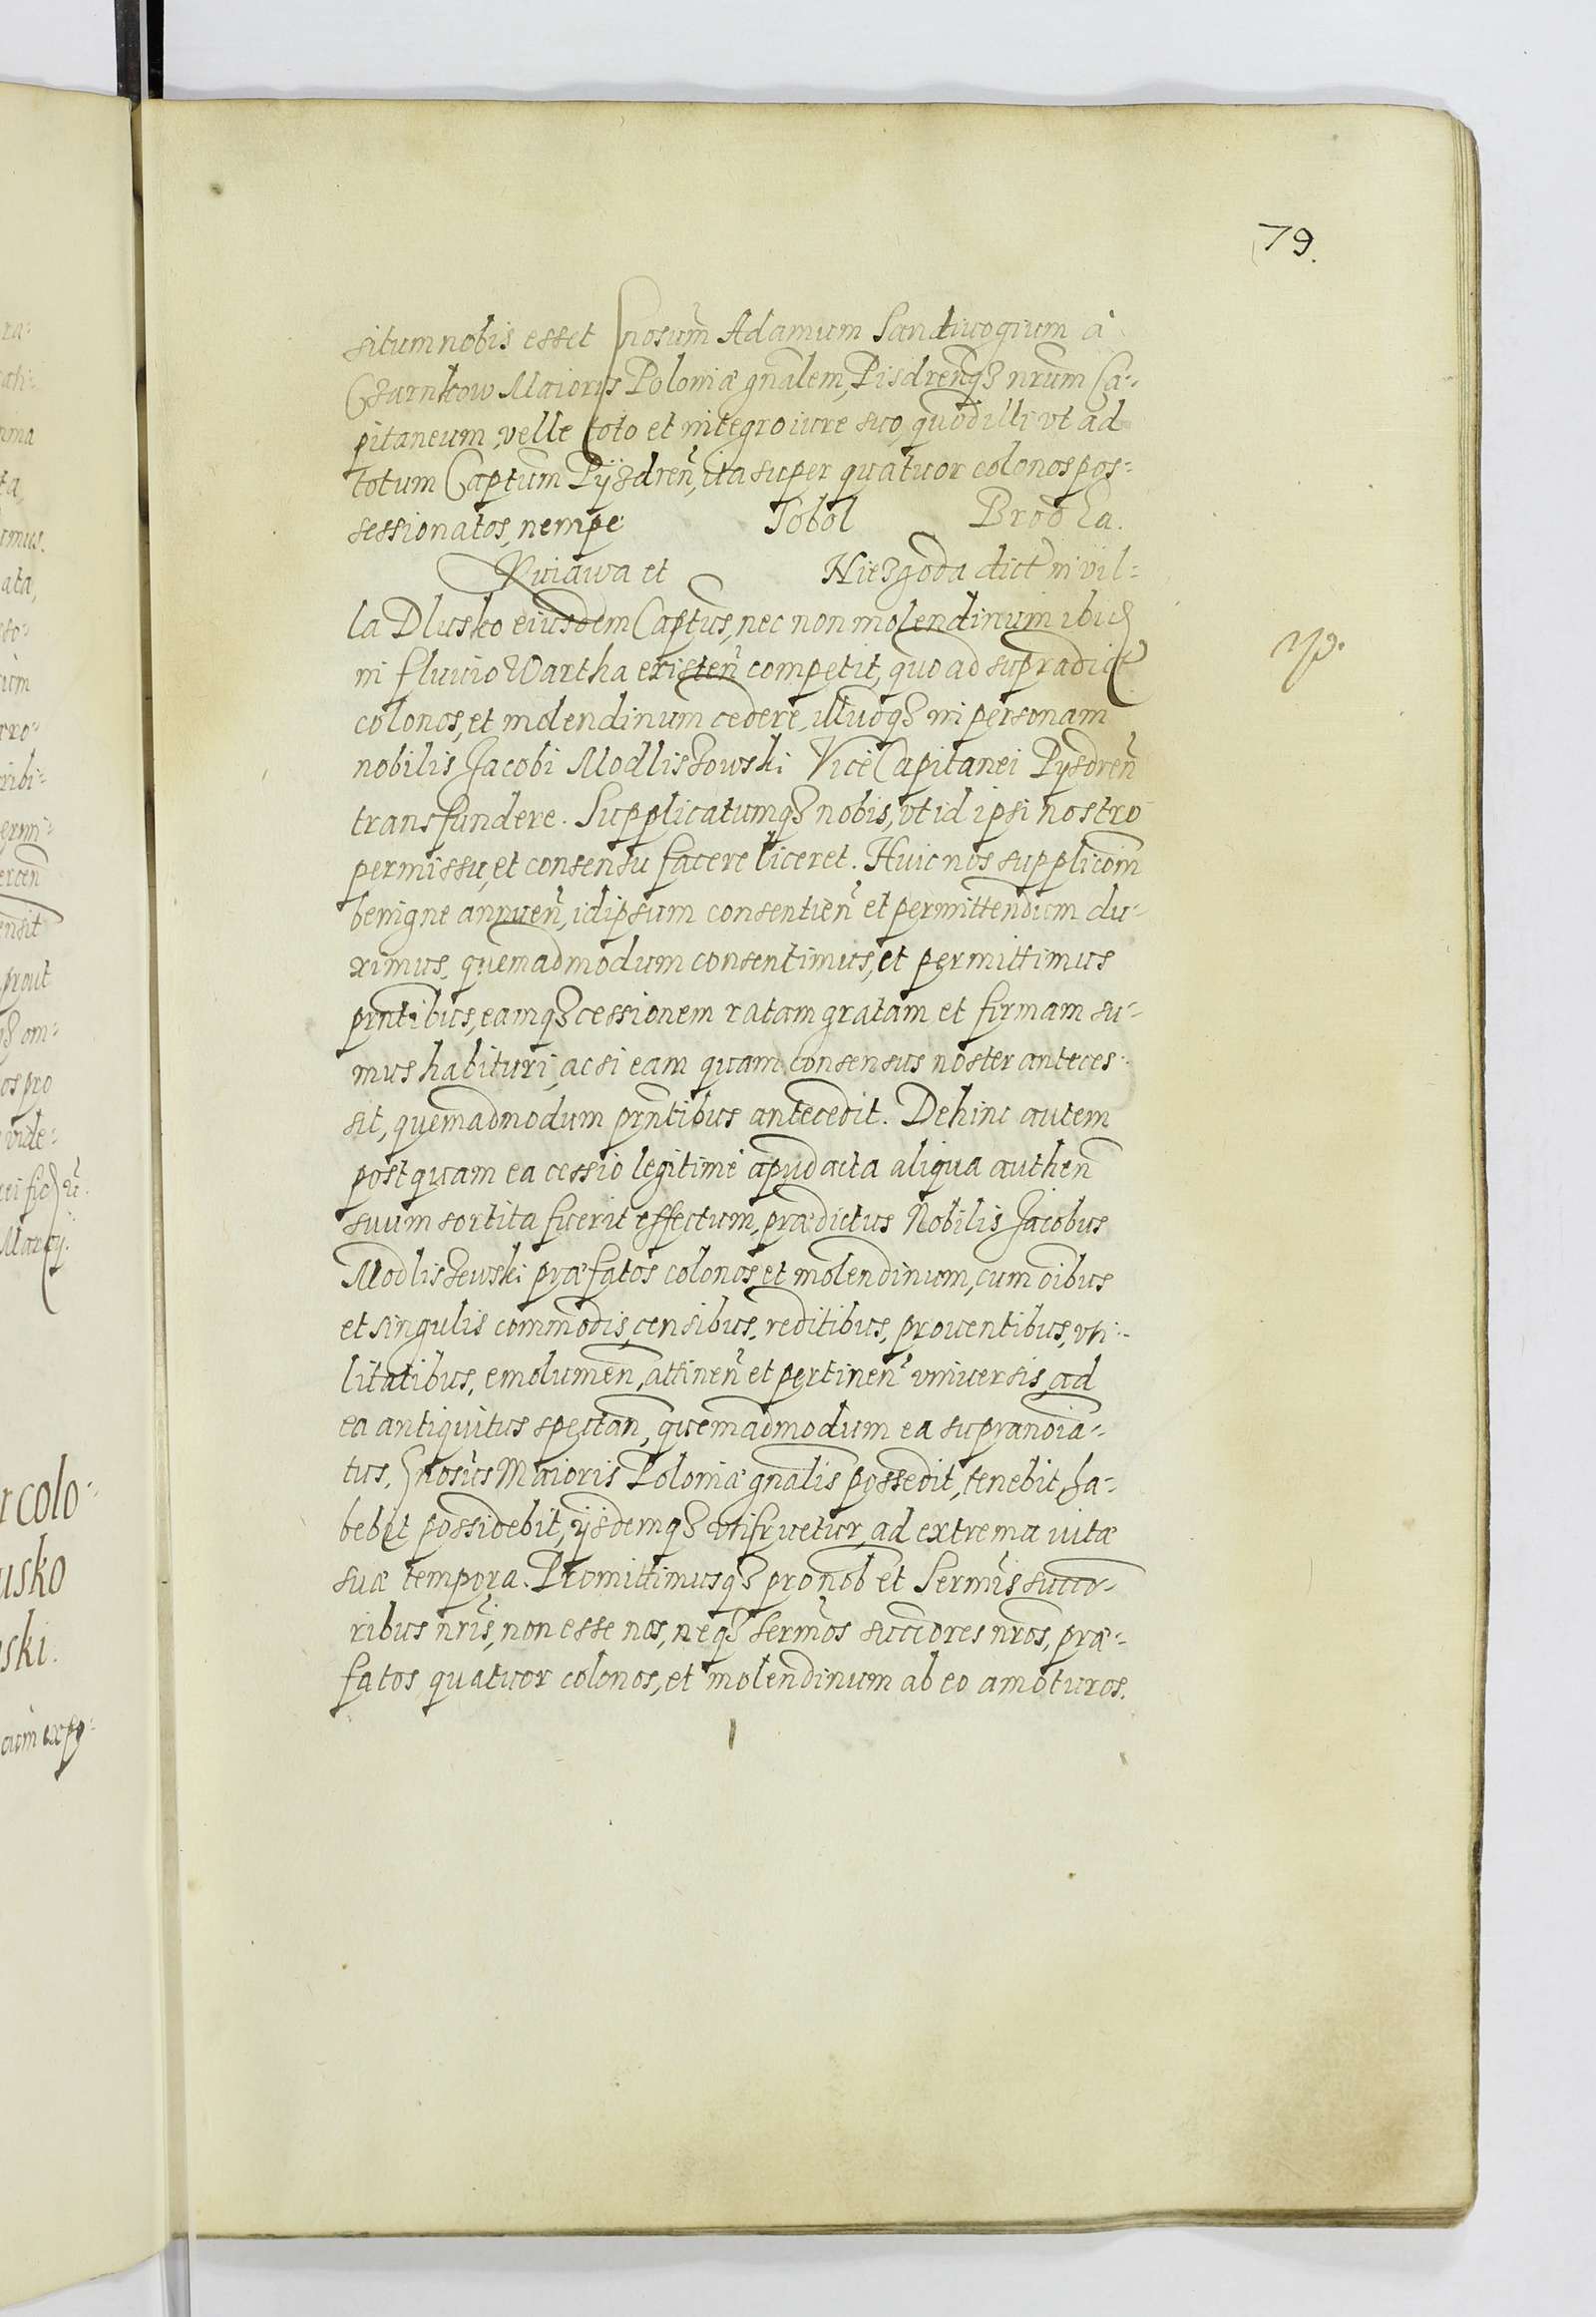 79.
situm nobis esset Gnosum̃ Adamum Sandivogium à
Czarnkow Maioris Poloniæ gñalem, Pisdreñqз nrum Ca-
pitaneum, velle toto et integro iure suo, quod illi vt ad
totum Capt̃um Pÿzdreñ, ita super quatuor colonos pos-
sessionatos, nempe Sobol Brodka.
Kuiawa et Niezgoda dict̃ in vil-
la Dlusko eiusdem Capt̃us, nec non molendinum ibid
in fluuio Wartha existeñ competit, quo ad supradict̃
colonos, et molendinum cedere, illudqз in personam
nobilis Jacobi Modliszowski Vice Capitanei Pyzdreñ
transfundere. Supplicatumqз nobis, vt id ipsi nostro
permissu, et consensu facere liceret. Huic nos supplicom̃
benigne annueñ, id ipsum consentieñ et permittendum du-
ximus, quemadmodum consentimus, et permittimus
prñtibus, eamqз cessionem ratam gratam et firmam su-
mus habituri, ac si eam quam consensus noster anteces-
sit, quemadmodum prñtibus antecedit. Dehinc autem
postquam ea cessio legitimè apud acta aliqua autheñ
suum sortita fuerit effectum, prædictus Nobilis Jacobus
Modliszewski præfatos colonos et molendinum, cum oĩbus
et singulis commodis, censibus, reditibus, prouentibus, vti-
litatibus, emolumeñ, attineñ et pertineñ vniuersis, ad
ea antiquitus spectañ, quemadmodum ea supranoĩa-
tus, Gnosus Maioris Poloniæ gñalis possedit, tenebit, ha-
bebit possidebit, ÿsdemqз vtifruetur, ad extrema vitæ
suæ tempora. Promittimusqз pro nob et Serm̃is succo-
ribus nr̃is, non esse nos, neqз Serm̃os succores nr̃os, præ-
fatos quatuor colonos, et molendinum ab eo amoturos.